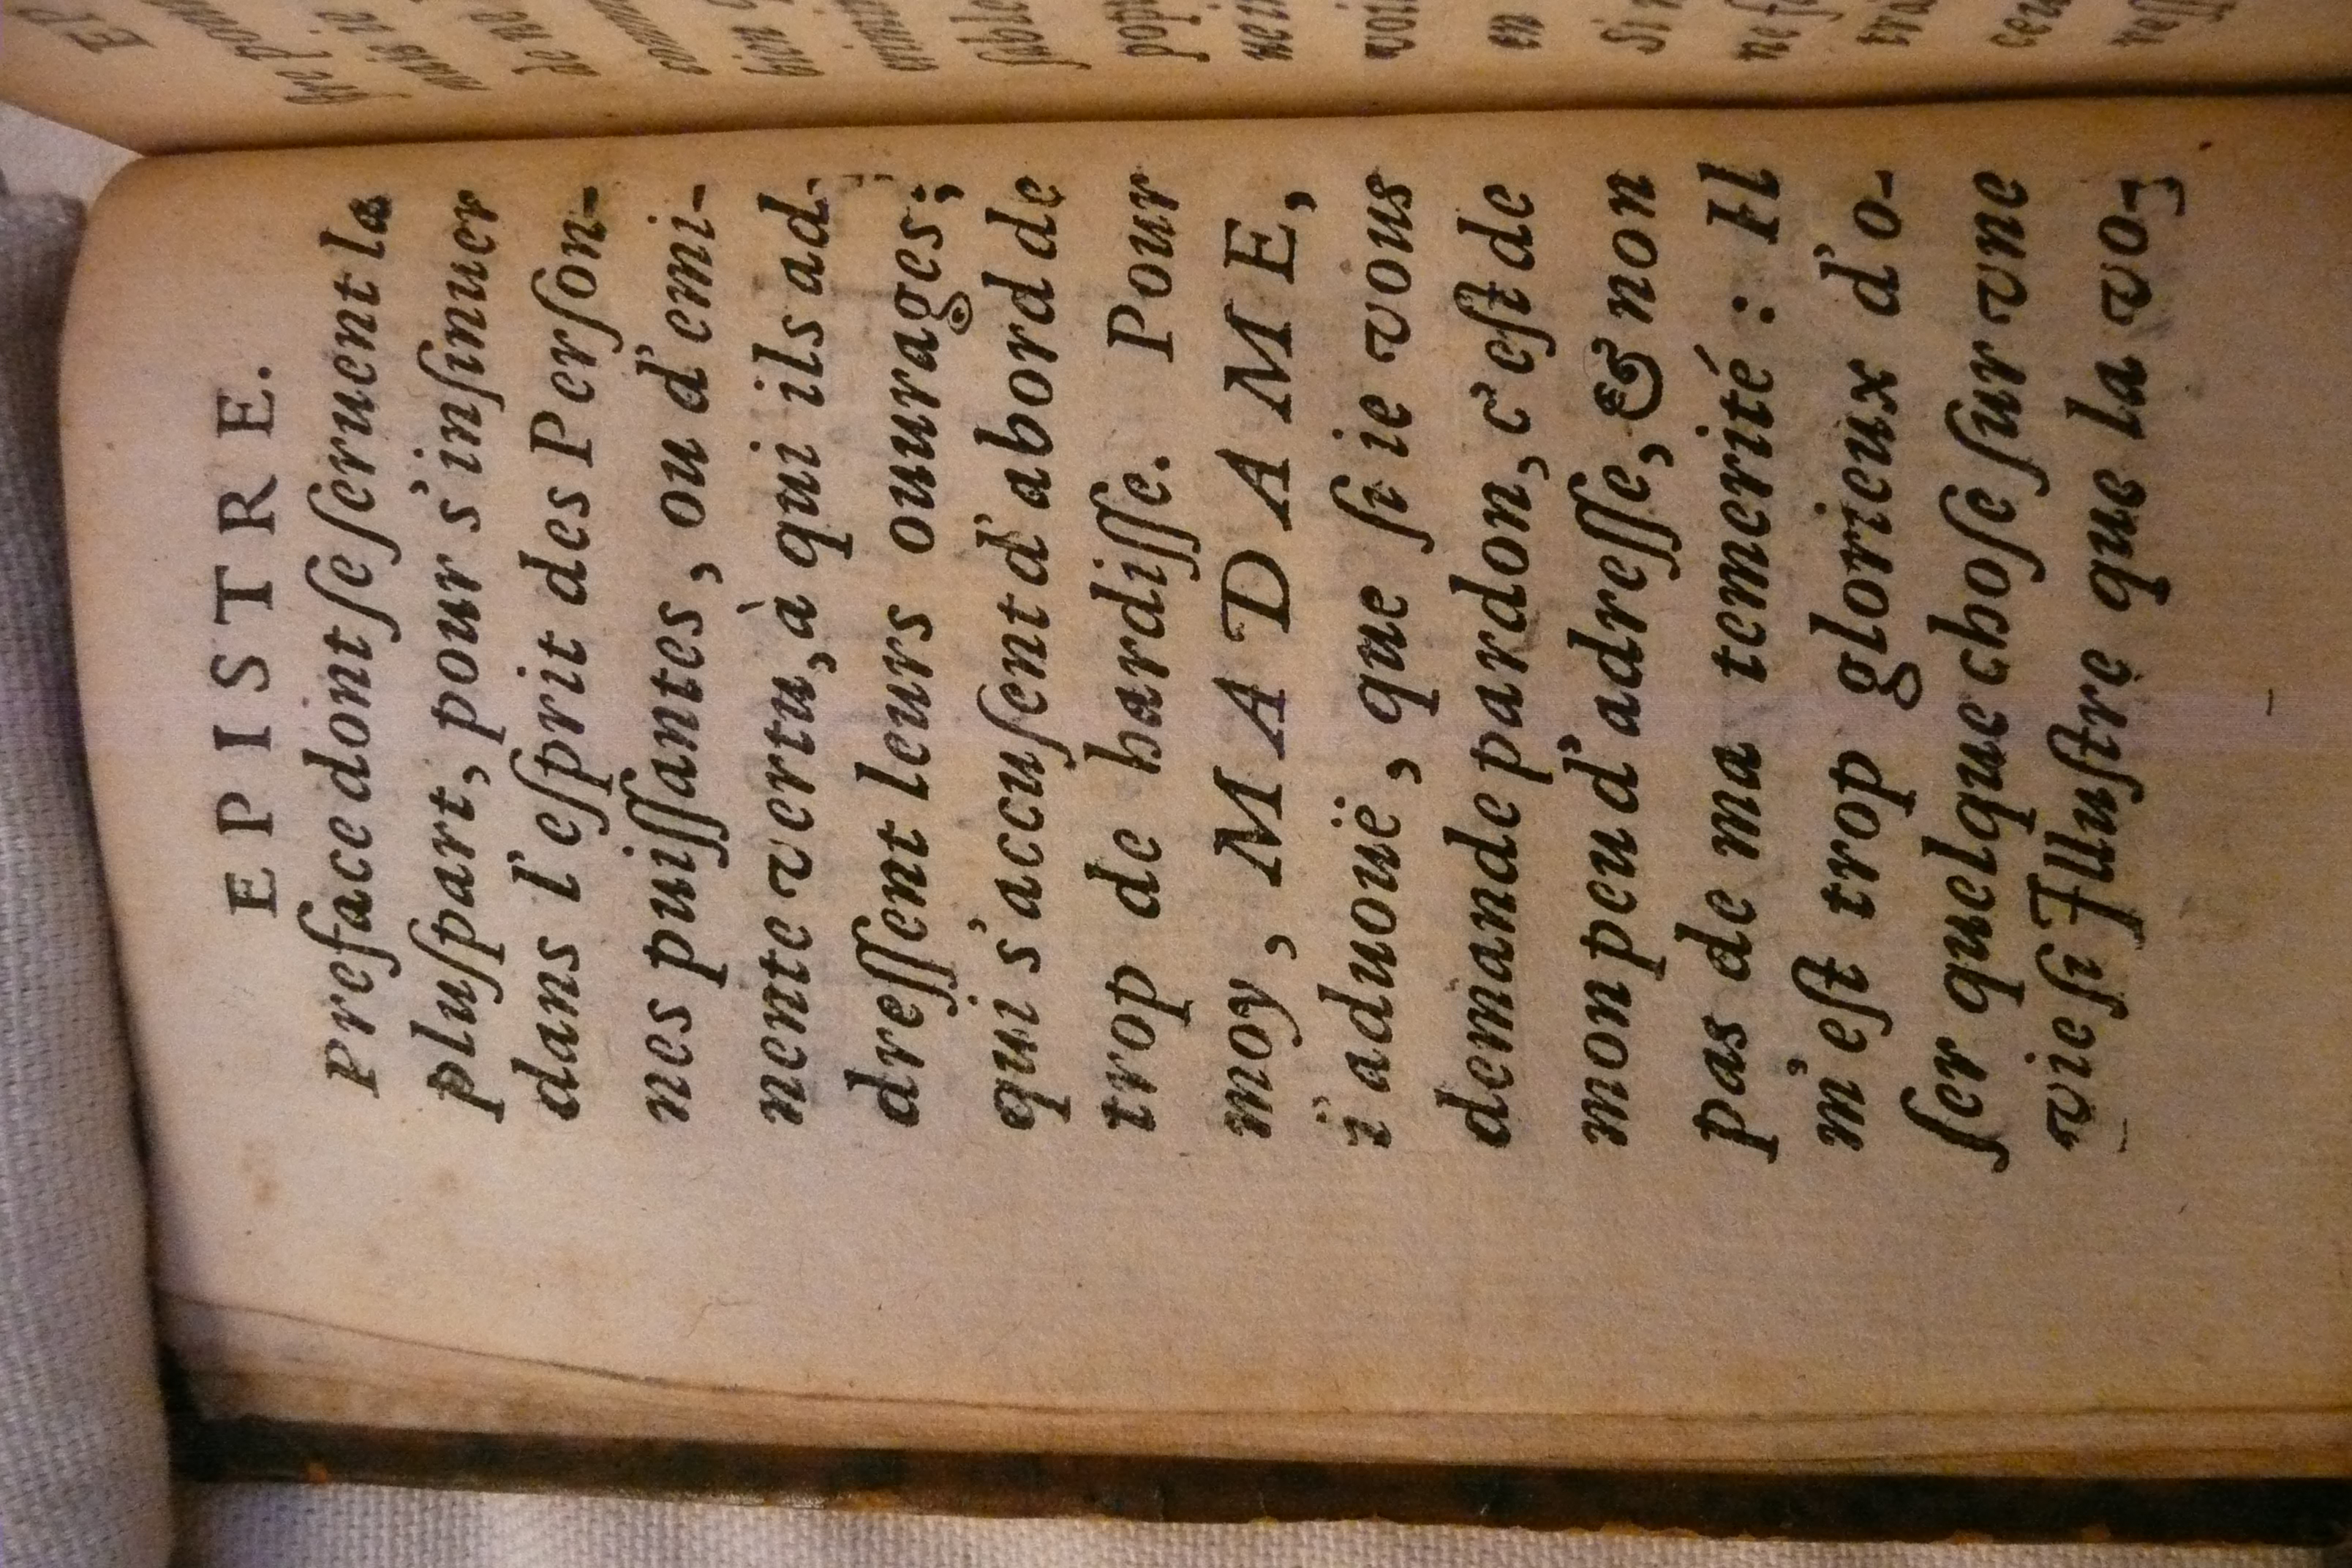 EPISTRE.
Preface dont ſe ſeruent la
pluſpart, pour s'inſinuer
dans l'eſprit des Perſon-
nes puiſſantes, ou d'emi-
nente vertu, à qui ils ad-
dreſſent leurs ouurages;
qui s'accuſent d'abord de
trop de hardiſſe. Pour
moy, MADAME,
i'aduouë, que ſi ie vous
demande pardon, c'eſt de
mon peu d'adreſſe, & non
pas de ma temerité: Il
m'eſt trop glorieux d'o-
ſer quelque choſe ſur vne
vie ſi Illuſtre que la vo-
en